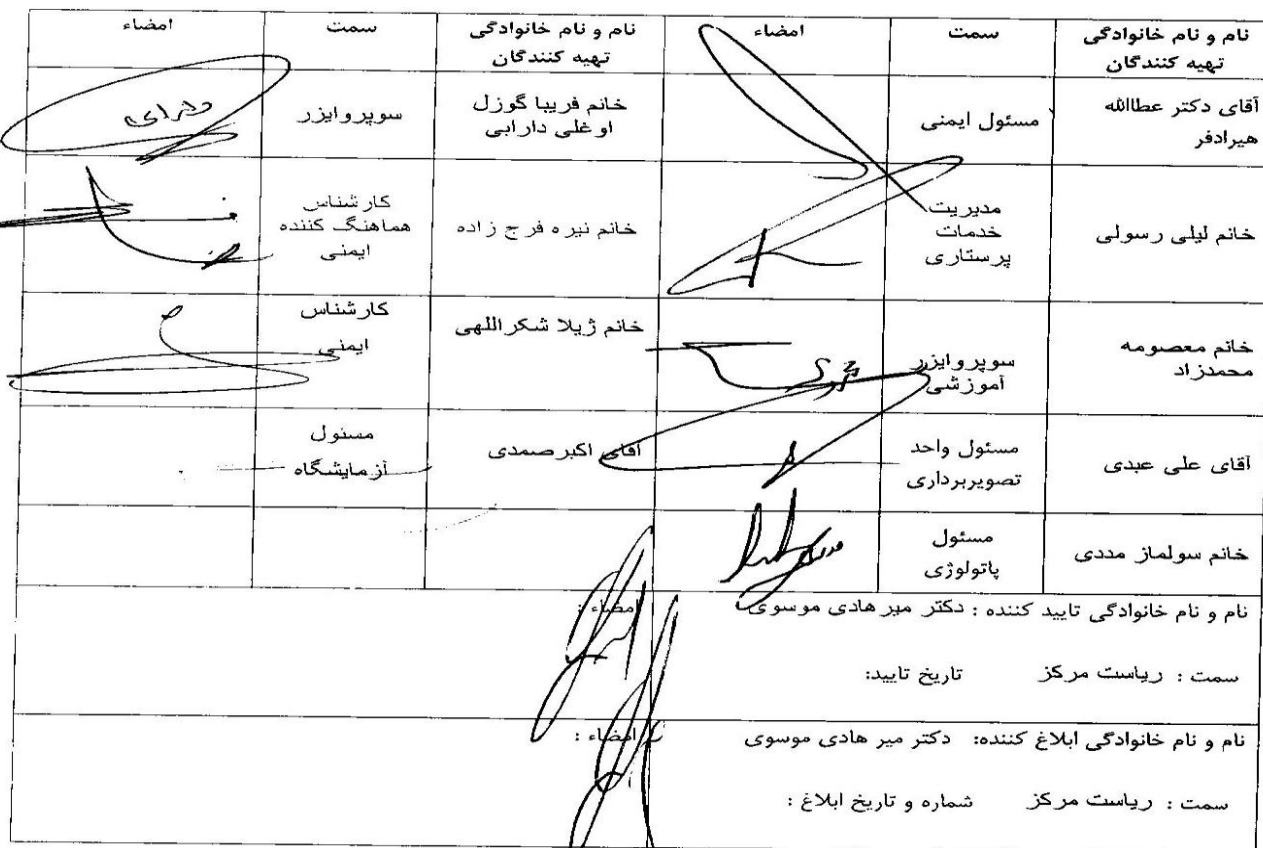 نام و نام خانوادگی
تهیه کنندگان
سمت
امضاء
نام و نام خانوادگی
تهیه کنندگان
سمت
امضاء
آقای دکتر عطاالله
هیرادفر
مسئول ایمنی
خانم فریبا گوزل
اوغلی دارابی
سوپروایزر
خانم لیلی رسولی
مدیریت
خدمات
پرستاری
خانم نیره فرج زاده
کارشناس
هماهنگ کننده
ایمنی
خانم معصومه
محمدزاد
سوپروایزر
آموزشی
خانم ژیلا شکراللهی
کارشناس
ایمنی
آقای علی عبدی
مسئول واحد
تصویربرداری
آقای اکبرصمدی
مسئول
آزمایشگاه
خانم سولماز مددی
مسئول
پاتولوژی
نام و نام خانوادگی تایید کننده : دکتر میر هادی موسوی
امضاء :
سمت : ریاست مرکز تاریخ تایید:
نام و نام خانوادگی ابلاغ کننده: دکتر میر هادی موسوی
امضاء :
سمت : ریاست مرکز شماره و تاریخ ابلاغ :